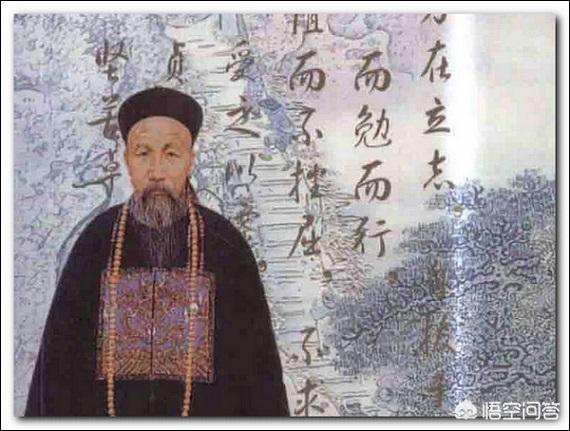 在立志 拔
而勉而行
而不挫屈 不求
受之以
贞
坚苦卓
悟空问答